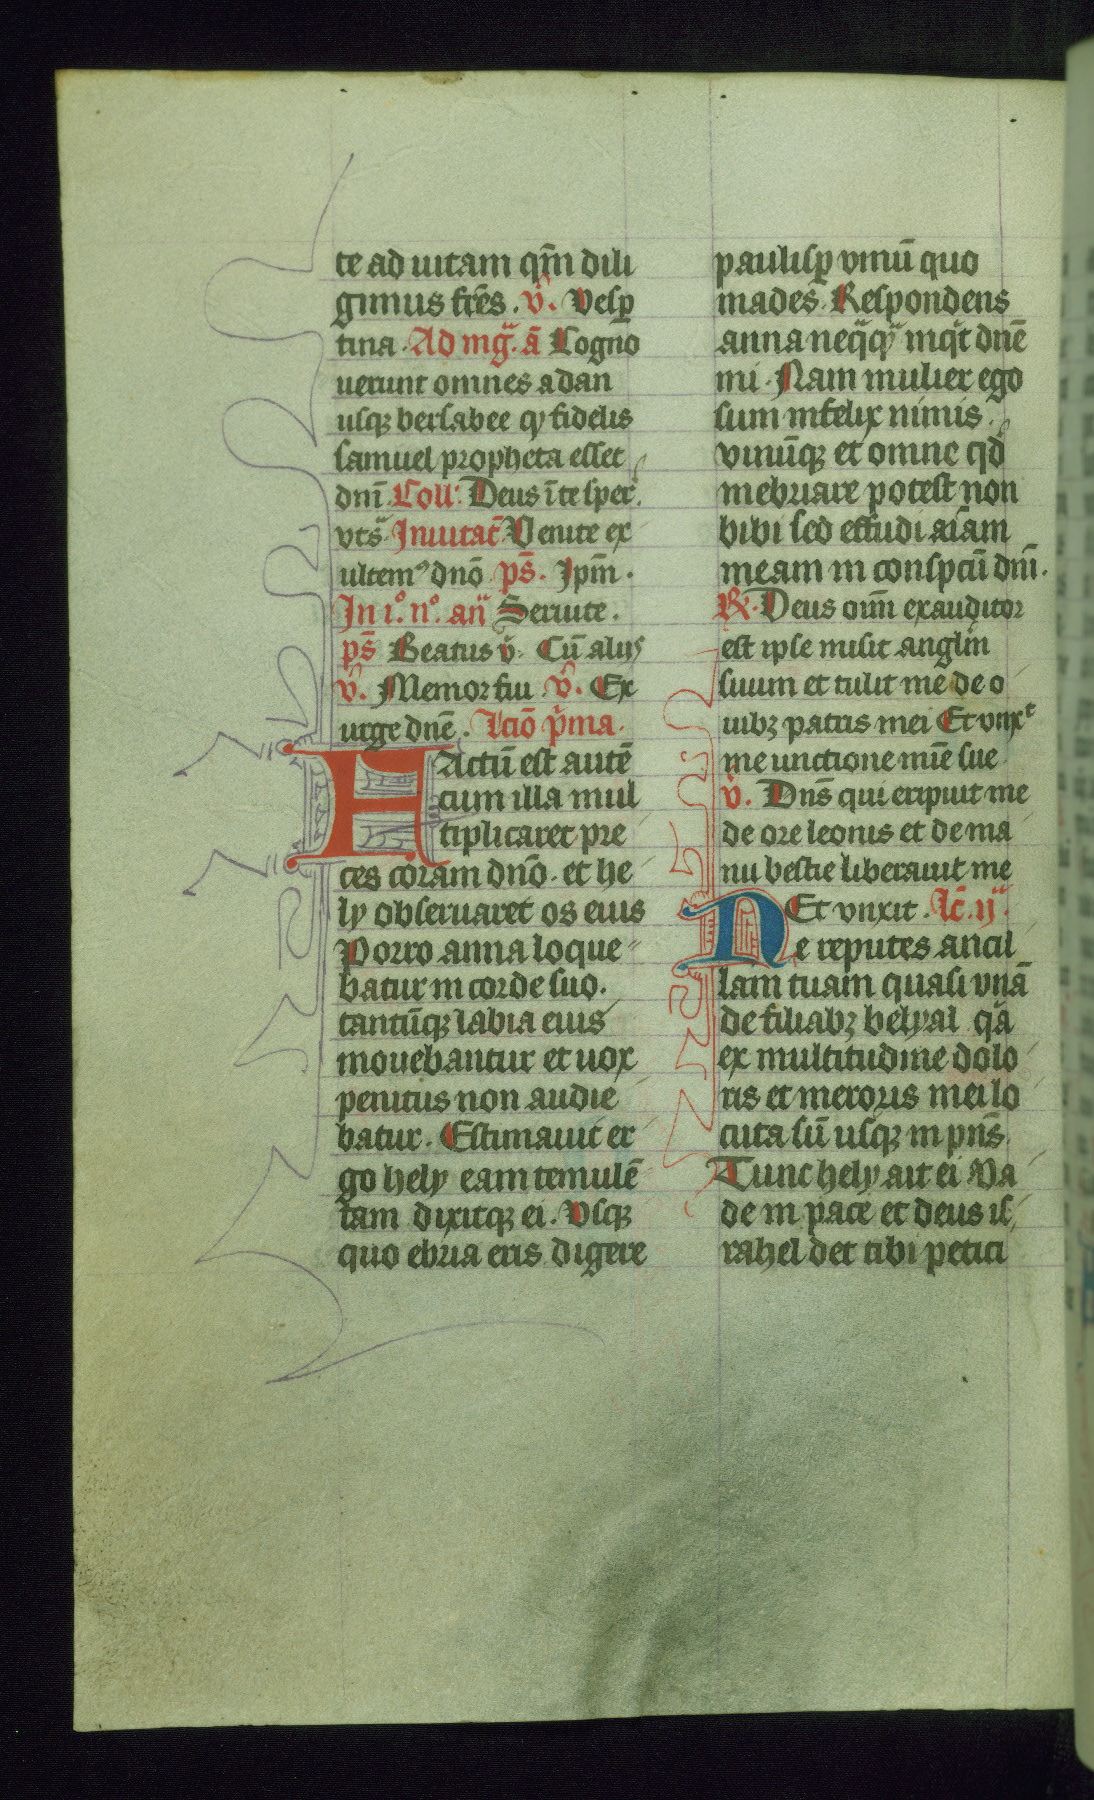 te ad uitam qm̄ dili
gimus frēs. v̄. Vesp̄
tina. Ad mgᷓ. ā Cogno
uerunt omnes a dan
usqꝫ bersabee qꝫ fidelis
samuel propheta esset
dnī. Coll: Deus ī te sper
vts̄. Inuitat̄ Venite ex
ultemꝰ dnō. ps̄. Ipm̄.
In i.° n.° an̄ Seruite.
ps̄ Beatus v̄. Cū alijs
v̄. Memor fui v̄. Ex
urge dnē. Lctō pͥma.
Factū est autē
cum illa mul
tiplicaret pre
ces coram dnō. et he
ly obseruaret os eius
Porro anna loque
batur in corde suo.
tantūqꝫ labia eius
mouebantur et uox
penitus non audie
batur. Estimauit er
go hely eam temulē
tam dixitqꝫ ei. Vsqꝫ
quo ebria eris digere
paulisꝑ vinū quo
mades. Respondens
anna neqᷓqᷓ inqͥt dnē
mi. Nam mulier ego
sum infelix nimis.
vinūqꝫ et omne qd̄
inebriare potest non
bibi sed effudi aīam
meam in conspcū dnī.
R̄. Deus oīm exauditor
est ipse misit anglm̄
suum et tulit me de o
uibꝫ patris mei Et vnxᵗ
me unctione mīe sue
v̄. Dns̄ qui eripuit me
de ore leonis et de ma
nu bestie liberauit me
Et vnxit. Lc̄. ij.
Ne reputes ancil
lam tuam quasi vnā
de filiabꝫ belyal qᷓ
ex multitudine dolo
ris et meroris mei lo
cuta sū usqꝫ in pn̄s.
Tunc hely ait ei Va
de in pace et deus is
rahel det tibi petici